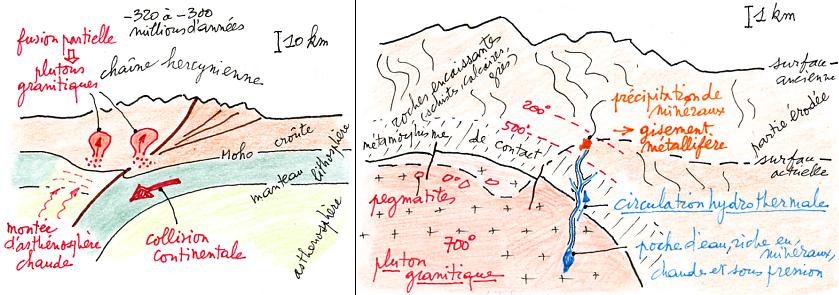 -320 à -300
millions d'années
fusion partielle
plutons
granitiques
chaîne hercynienne
10 km
croûte
Moho
manteau
lithosphère
asthénosphère
montée
d'asthénosphère
chaude
collision
continentale
1 km
surface
ancienne
roches encaissantes
(schists, calcaires,
grès)
précipitation de
minéraux
→ gisement
métallifère
partie érodée
200°
500°
métamorphisme de contact
surface
actuelle
pegmatites
circulation hydrothermale
700°
pluton
granitique
poche d'eau, riche en
minéraux,
chaude et sous pression